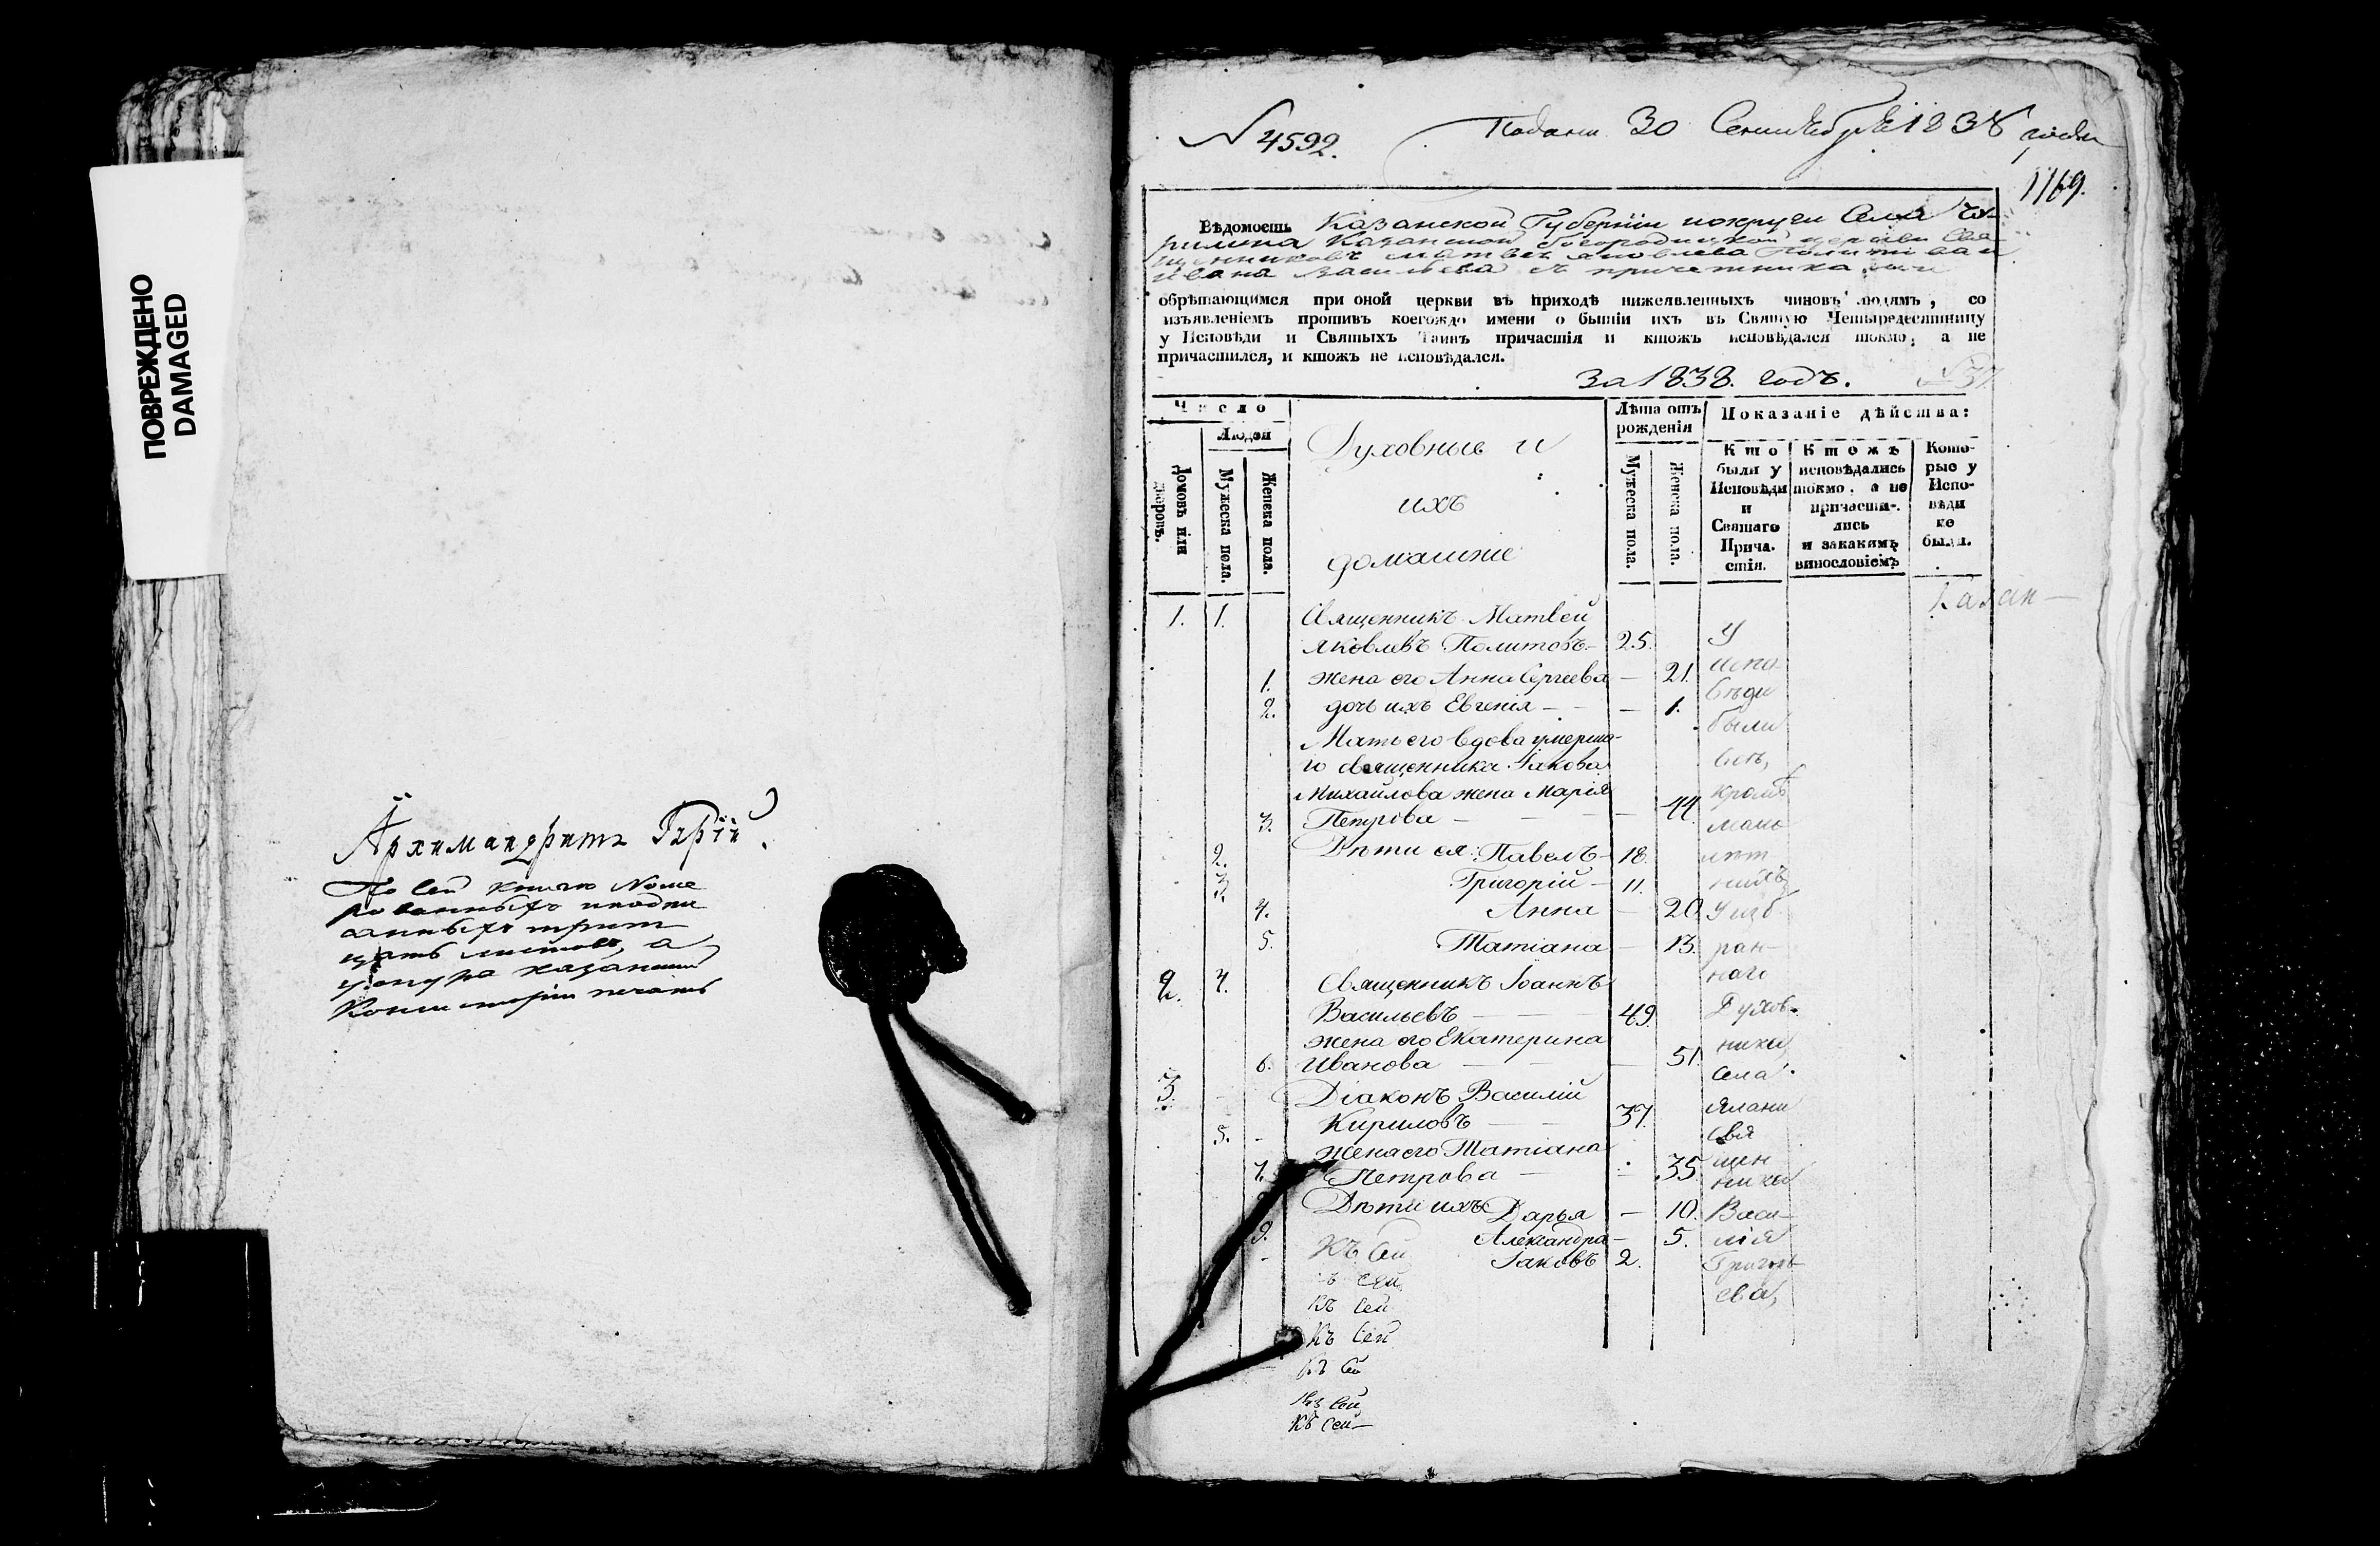 ПОВРЕЖДЕНО
DAMAGED
Архимандритъ Гурій.
По сей книгѣ Номе
рованныхъ
трит
цать листовъ, а
у шнура казанской
Консисторіи печать
N 4592.
Подана 30 Сентября 1838 года
1169.
Вѣдомость Казанской Губерніи и округи Села
Казанской Богородицкой церкви Свя
щенниковъ Матвея Яковлева Политова и
Ивана Васильева съ причетниками
обрѣтающимся при оной церкви въ приходѣ нижеявленныхъ чиновъ людямъ, со
изъявленіемъ противъ коегождо имени о бытіи ихъ въ Святую Четыредесятницу
у Исповѣди и Святыхъ Таинъ причастія и ктожъ исповѣдался токмо, а не
причастился, и ктожъ не исповѣдался.
за 1838. годъ.
Число
Людей
Домовъ или дворовъ.
Мужеска пола.
Женска пола.
Духовные и
ихъ
домашніе
Лѣта отъ рожденія
Мужеска пола.
Женска пола.
Показаніе дѣйства:
Кто были у Исповѣди и Святаго Прича-стія.
Ктожъ исповѣдались токмо, а не причасти-лись и закакимъ винословіемъ
Кото-рые у Испо-вѣди не были.
Казан-
1. 1. Священникъ Матвей
Яковлевъ Политовъ- 25. У
1. жена его Анна Сергеева - 21. испо
2. дочь ихъ Евгенія - - - 1. вѣди
были
Мать его вдова умерша-
го священника Іакова всѣ,
Михайлова жена Марія кромѣ
3. Петрова - - - 44 мало
2. Дѣти ея: Павелъ- 18. лѣт
3. Григорій - 11. нихъ
4. Анна - 20. у изб
5. Татіана - 13. ран-
2. 4. Священникъ Іоаннъ наго
Васильевъ - - - 49. Духов-
жена его Екатерина ника
6. Иванова - - - 51. села
3. Діаконъ Василій
5. Кириловъ - - 37. свя
жена его Татіана щен
7. Петрова - - 35. ника
Дѣти ихъ Дарья - 10. Васи-
9. Александра- 5. лія
Къ сей Іаковъ 2. Григорь
ъ сей ева,
Къ сей
Къ сей
Къ сей
Къ сей
Къ сей-